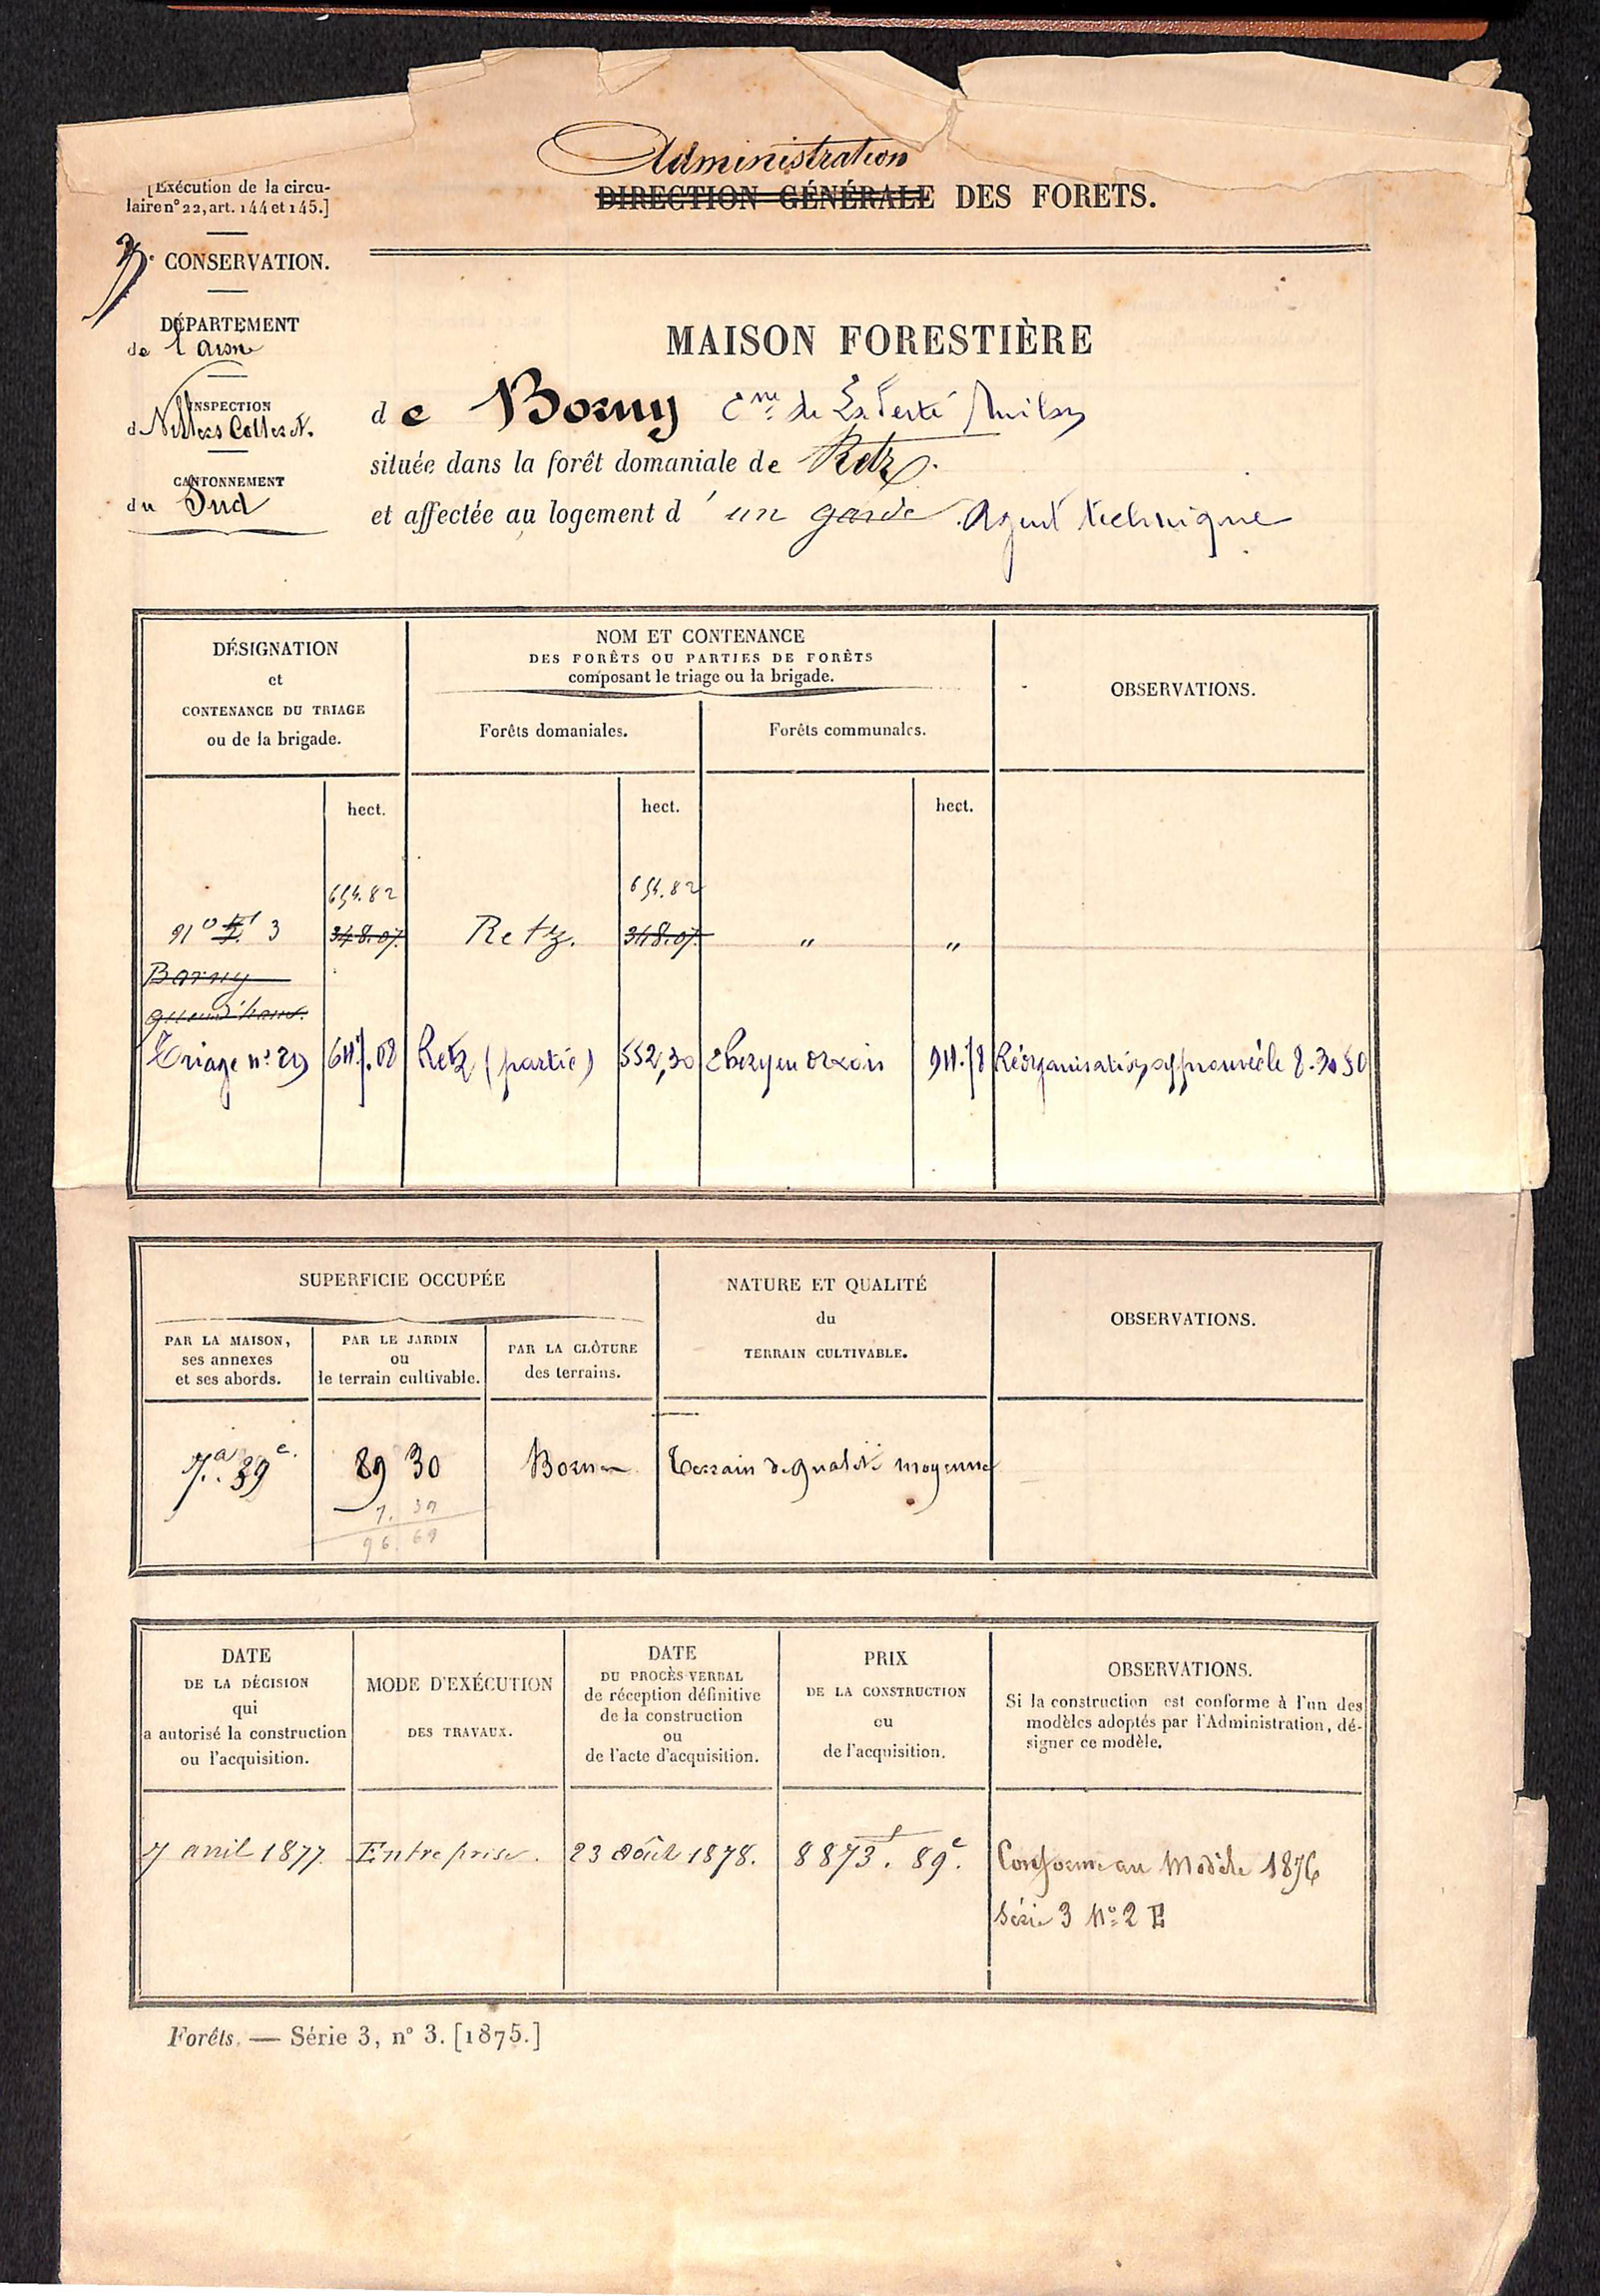 Administration
DIRECTION GÉNÉRALE DES FORETS.
[Exécution de la circu-
laire n° 22, art. 144 et 145.]
7e CONSERVATION.
DÉPARTEMENT
de l'aisne
INSPECTION
de Villers Cotterets.
CANTONNEMENT
du Sud
MAISON FORESTIÈRE
de Borny Cne de La Ferté Milon
située dans la forêt domaniale de Retz.
et affectée au logement d'un garde Agent technique
DÉSIGNATION
et
CONTENANCE DU TRIAGE
ou de la brigade.
NOM ET CONTENANCE
DES FORÊTS OU PARTIES DE FORÊTS
composant le triage ou la brigade.
Forêts domaniales.
Forêts communales.
OBSERVATIONS.
hect. hect. hect.
654.82 654.82
3 348.07. Retz. 348.07. " "
Borny
Triage n° 29 647.08 Retz (partie) 552,30 Chezy en Orxois 94.78 Réorganisation approuvée le 8.30
SUPERFICIE OCCUPÉE
PAR LA MAISON,
ses annexes
et ses abords.
PAR LE JARDIN
ou
le terrain cultivable.
PAR LA CLÔTURE
des terrains.
NATURE ET QUALITÉ
du
TERRAIN CULTIVABLE.
OBSERVATIONS.
7a. 39c. 89 30 Borne Terrain de qualité moyenne
7. 39
96. 69
DATE
DE LA DÉCISION
qui
a autorisé la construction
ou l'acquisition.
MODE D'EXÉCUTION
DES TRAVAUX.
DATE
DU PROCÈS VERBAL
de réception définitive
de la construction
ou
de l'acte d'acquisition.
PRIX
DE LA CONSTRUCTION
ou
de l'acquisition.
OBSERVATIONS.
Si la construction est conforme à l'un des
modèles adoptés par l'Administration, dé-
signer ce modèle.
7 avril 1877. Entreprise. 23 août 1878. 8873f. 89c. Conforme au Modèle 1876
Série 3 N° 2 E
Forêts. — Série 3, n° 3. [1875.]